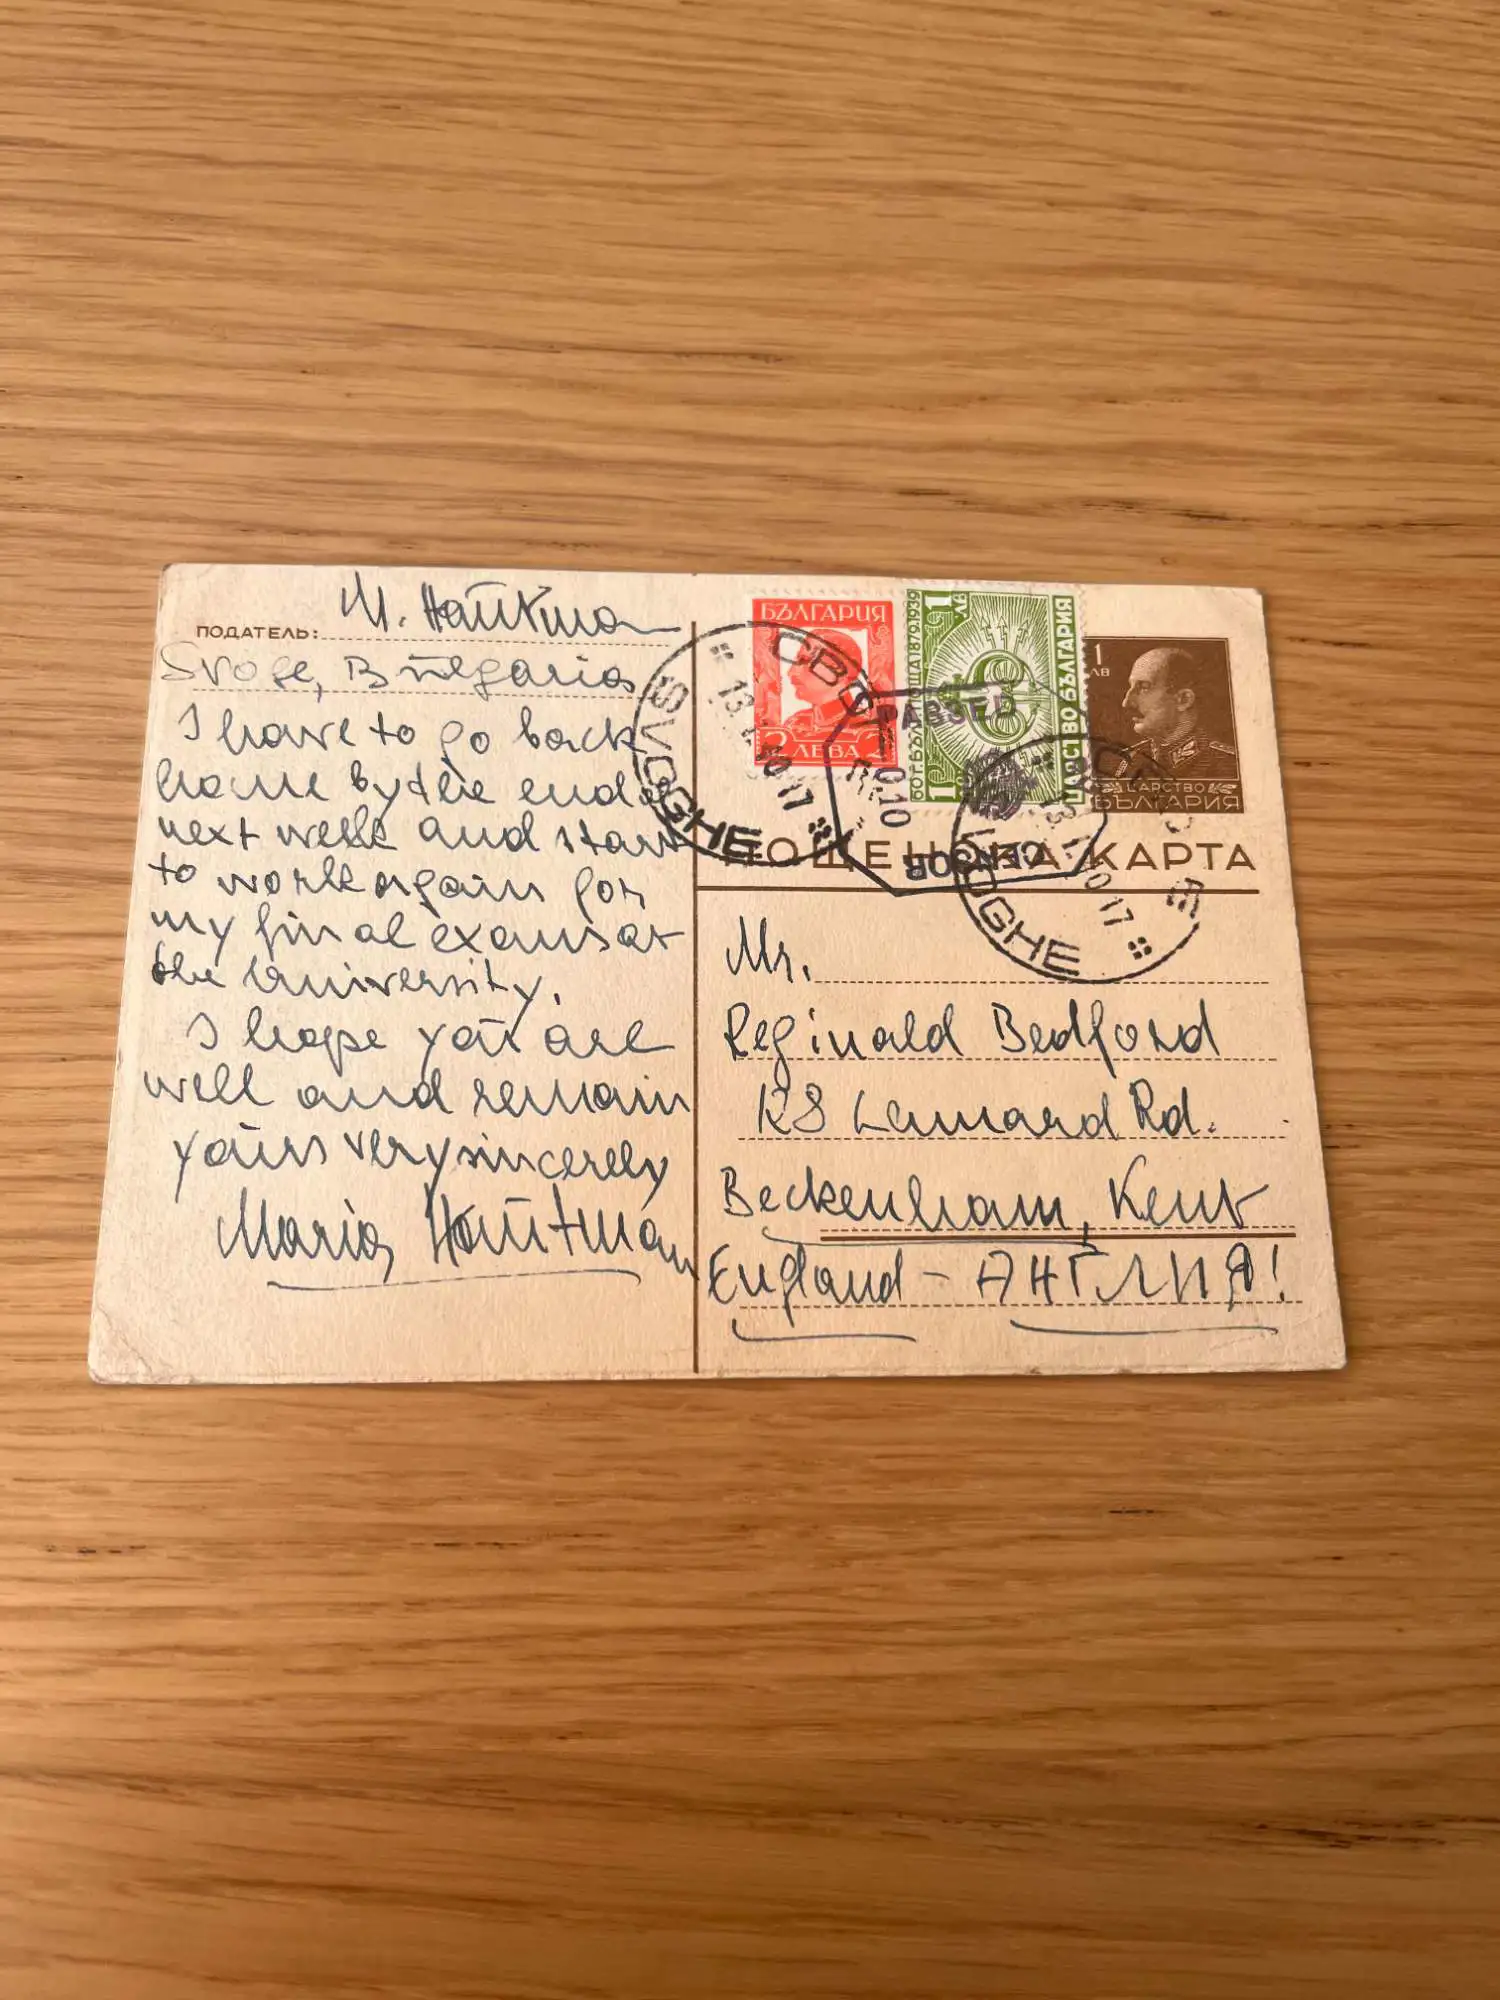 ПОДАТЕЛЬ: M. Hauptman
Svoge, Bulgaria
I have to go back
home by the end of
next week and start
to work again for
my final exams at
the University.
I hope you are
well and remain
yours very sincerely
Maria Hauptman
БЪЛГАРИЯ
2 ЛЕВА 2
1 ЛВ
60 Г. БЪЛГ. ПОЩА 1879.1939
ЦАРСТВО БЪЛГАРИЯ
1 ЛВ
ЦАРСТВО
БЪЛГАРИЯ
SVOGHE
17
PASSED
CENSOR
SVOGHE
17
ПОЩЕНСКА КАРТА
Mr.
Reginald Bedford
Rd.
Beckenham, Kent
England - АНГЛИЯ!